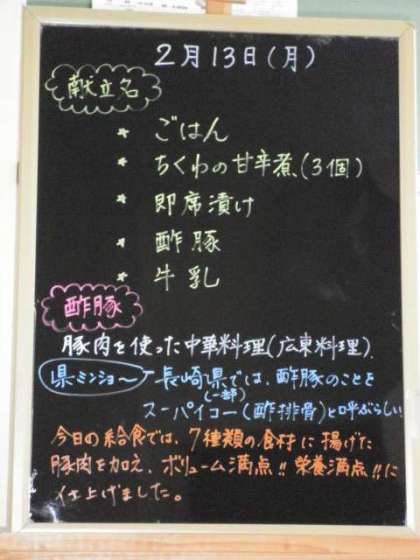 2月13日(月)
献立名
* ごはん
* ちくわの甘辛煮(3個)
* 即席漬け
* 酢豚
* 牛乳
酢豚
豚肉を使った中華料理(広東料理).
県ミンショー 長崎県では、酢豚のことを
(一部)
スーパイコー(酢排骨)と呼ぶらしい
今日の給食では、7種類の食材に揚げた
豚肉を加え、ボリューム満点!!栄養満点!!に
仕上げました。